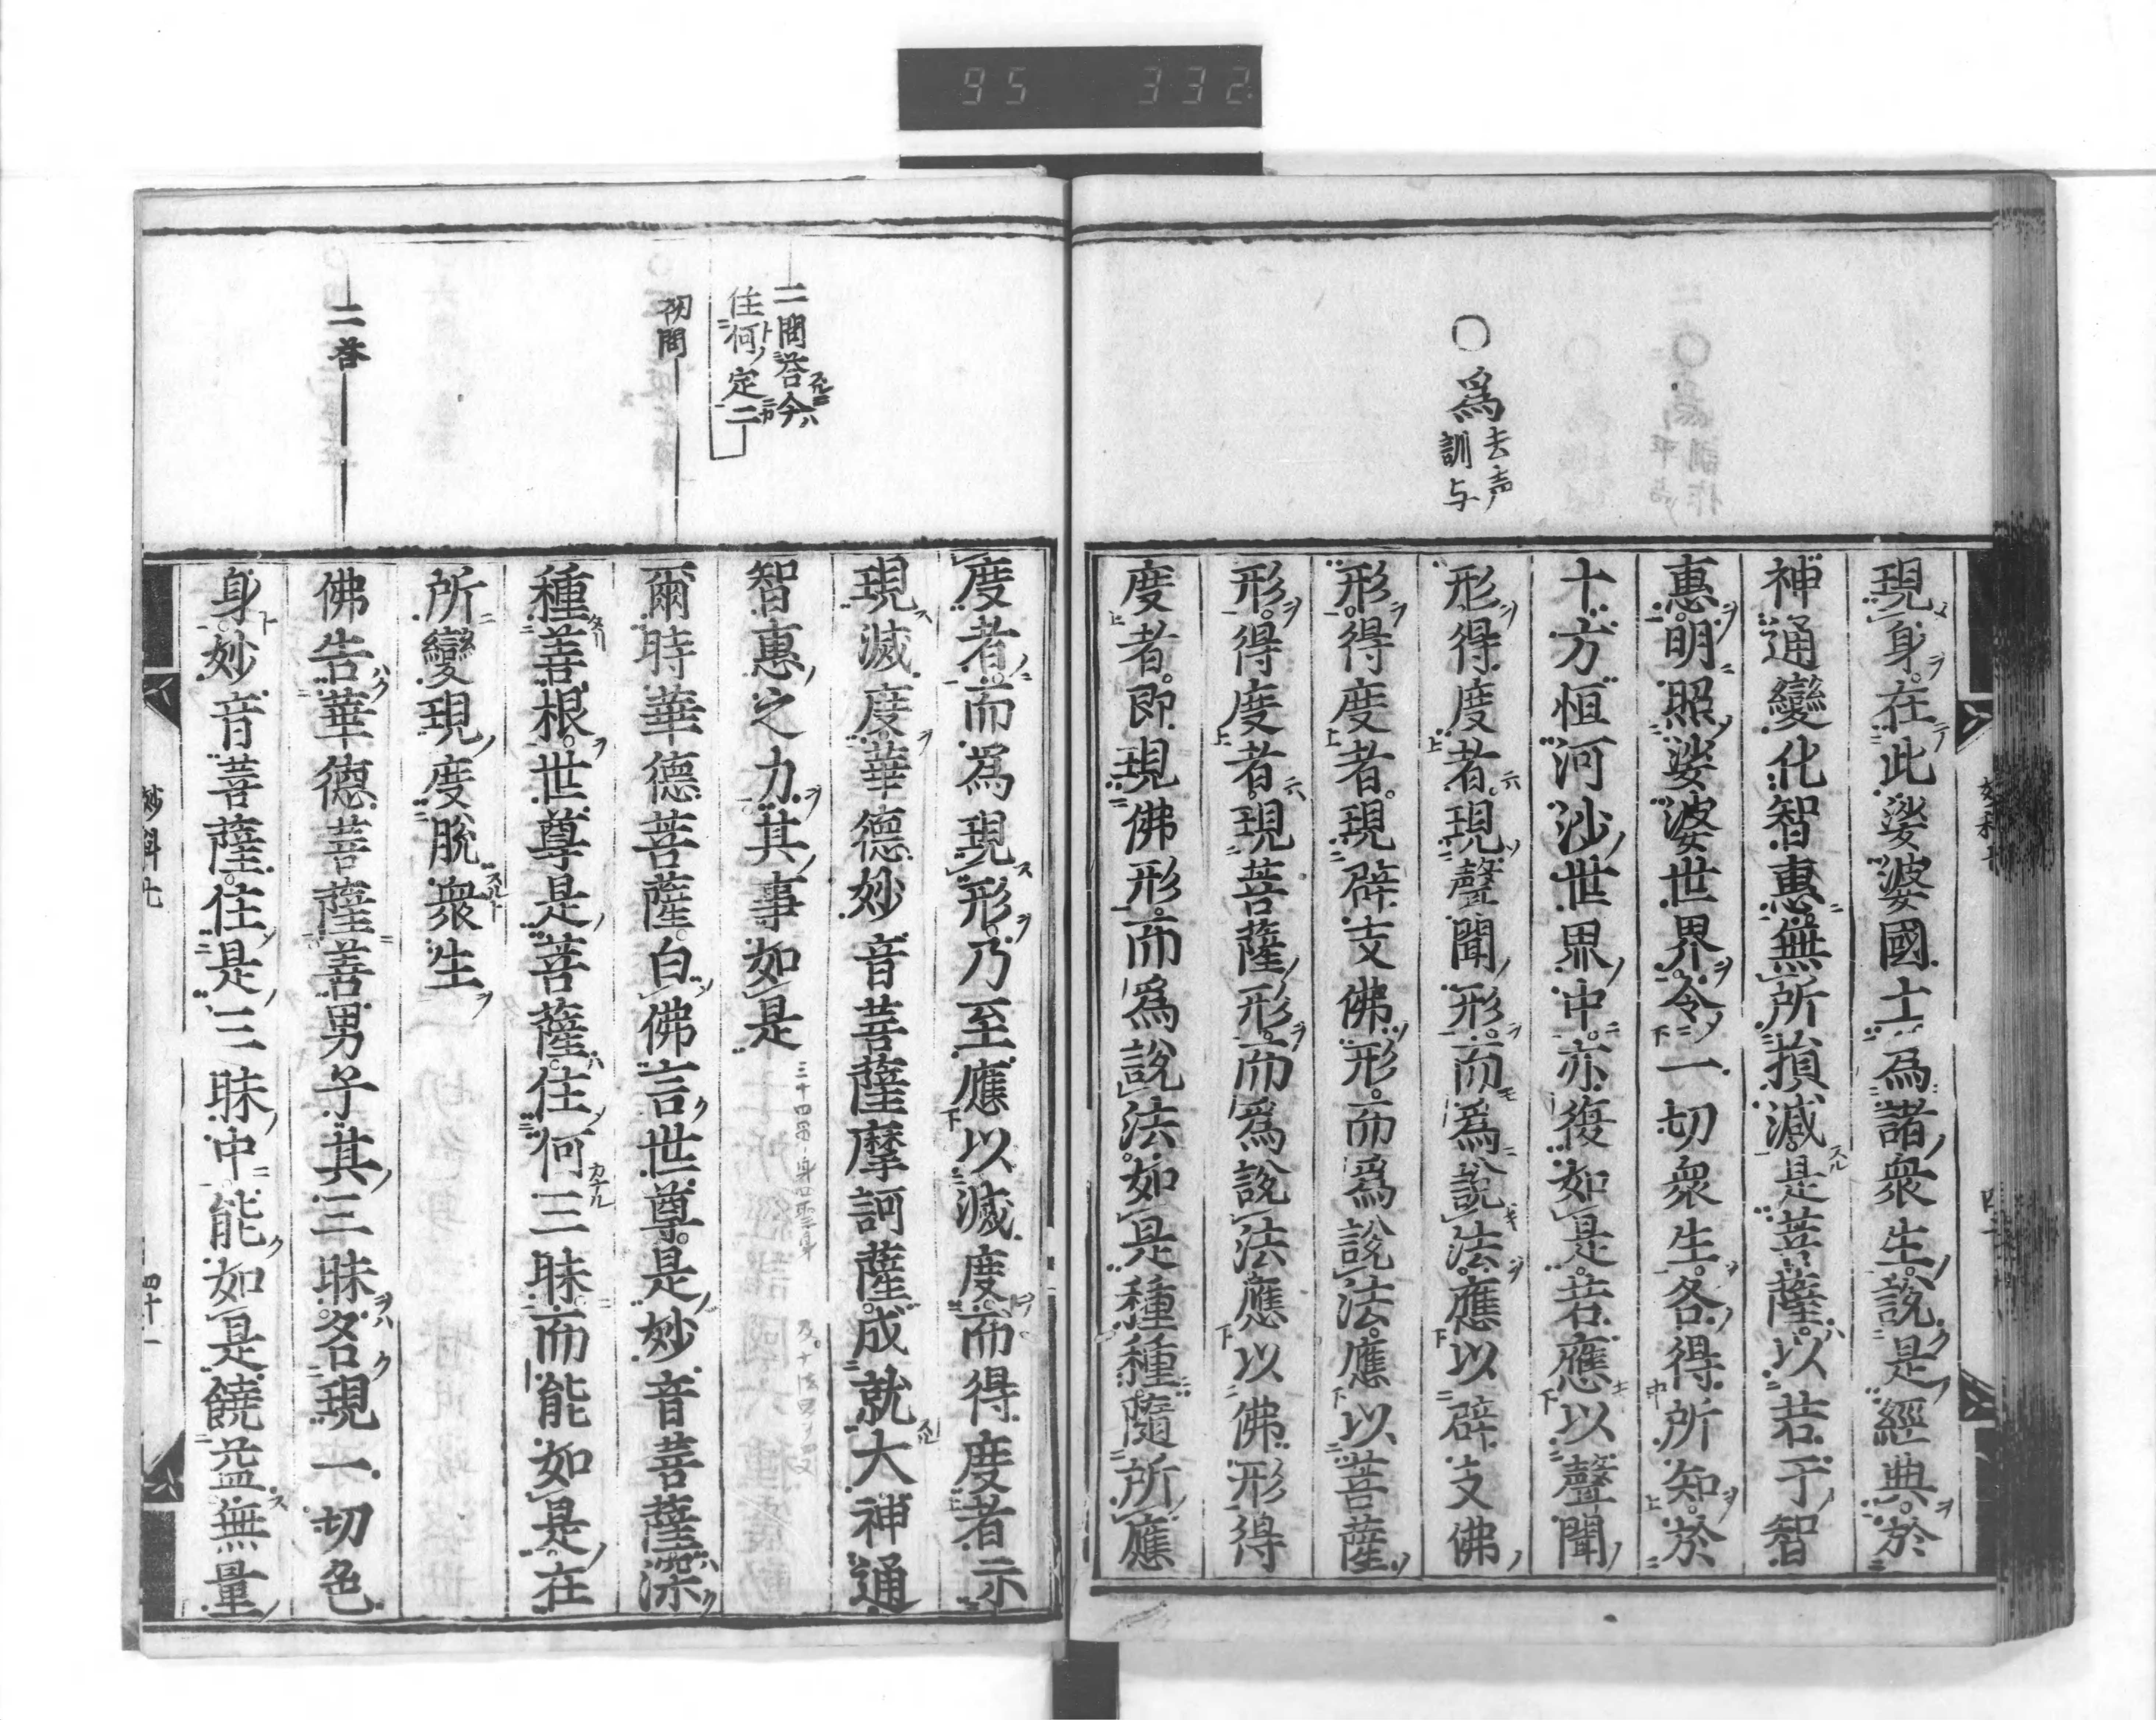 95 332
○為去声訓与
現身在此娑婆國土為諸衆生說是經典於
神通變化智惠無所損減是菩薩以若干智
惠明照娑婆世界令一切衆生各得所知於
十方恒河沙世界中亦復如是若應以聲聞
形得度者現聲聞形而為說法應以辟支佛
形得度者現辟支佛形而為說法應以菩薩
形得度者現菩薩形而為說法應以佛形得
度者即現佛形而為說法如是種種隨所應
二問答今
住何定二
初問
二答
度者而為現形乃至應以滅度而得度者示
現滅度華德妙音菩薩摩訶薩成就大神通
智惠之力其事如是
爾時華德菩薩白佛言世尊是妙音菩薩深
種善根世尊是菩薩住何三昧而能如是在
所變現度脫衆生
佛告華德菩薩善男子其三昧名現一切色
身妙音菩薩住是三昧中能如是饒益無量
妙科七
四十一